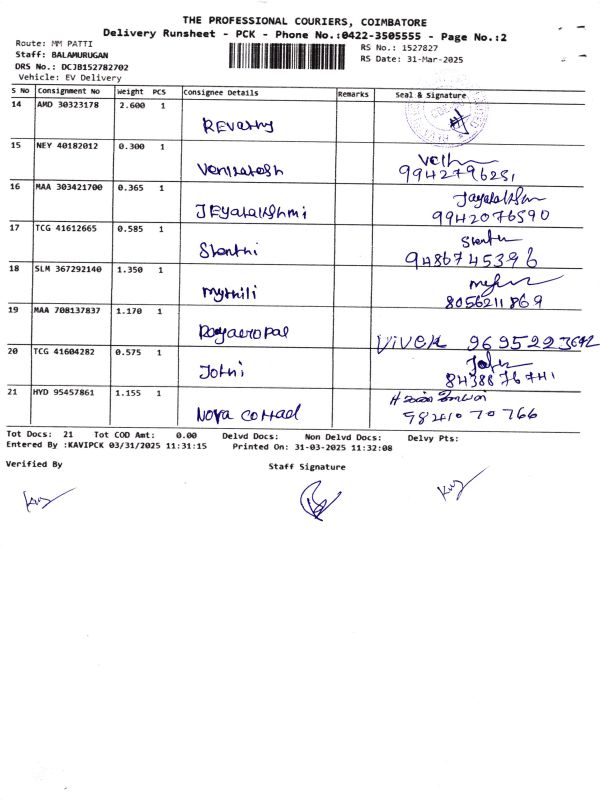 THE PROFESSIONAL COURIERS, COIMBATORE
Delivery Runsheet - PCK - Phone No.:0422-3505555 - Page No.:2
Route: MM PATTI
RS No.: 1527827
Staff: BALAMURUGAN
RS Date: 31-Mar-2025
DRS No.: DCJB152782702
Vehicle: EV Delivery
S No Consignment No Weight PCS Consignee Details Remarks Seal & Signature
14 AMD 30323178 2.600 1
Revathy
15 NEY 40182012 0.300 1
Venkatesh
9942796251
16 MAA 303421700 0.365 1
JEyalakshmi Jayalakshmi
9942076590
17 TCG 41612665 0.585 1
Shanthi
9486745396
18 SLM 367292140 1.350 1
Mythili
8056211869
19 MAA 708137837 1.170 1
Vivek
20 TCG 41604282 0.575 1
Jothi
21 HYD 95457861 1.155 1
Nova
9841070766
Tot Docs: 21 Tot COD Amt: 0.00 Delvd Docs: Non Delvd Docs: Delvy Pts:
Entered By :KAVIPCK 03/31/2025 11:31:15 Printed On: 31-03-2025 11:32:08
Verified By Staff Signature